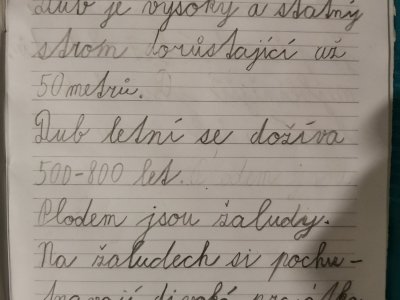 Dub je vysoký a statný
strom dorůstající až
50 metrů.
Dub letní se dožívá
500-800 let.
Plodem jsou žaludy.
Na žaludech si pochu-
tnávají divoká prasátka